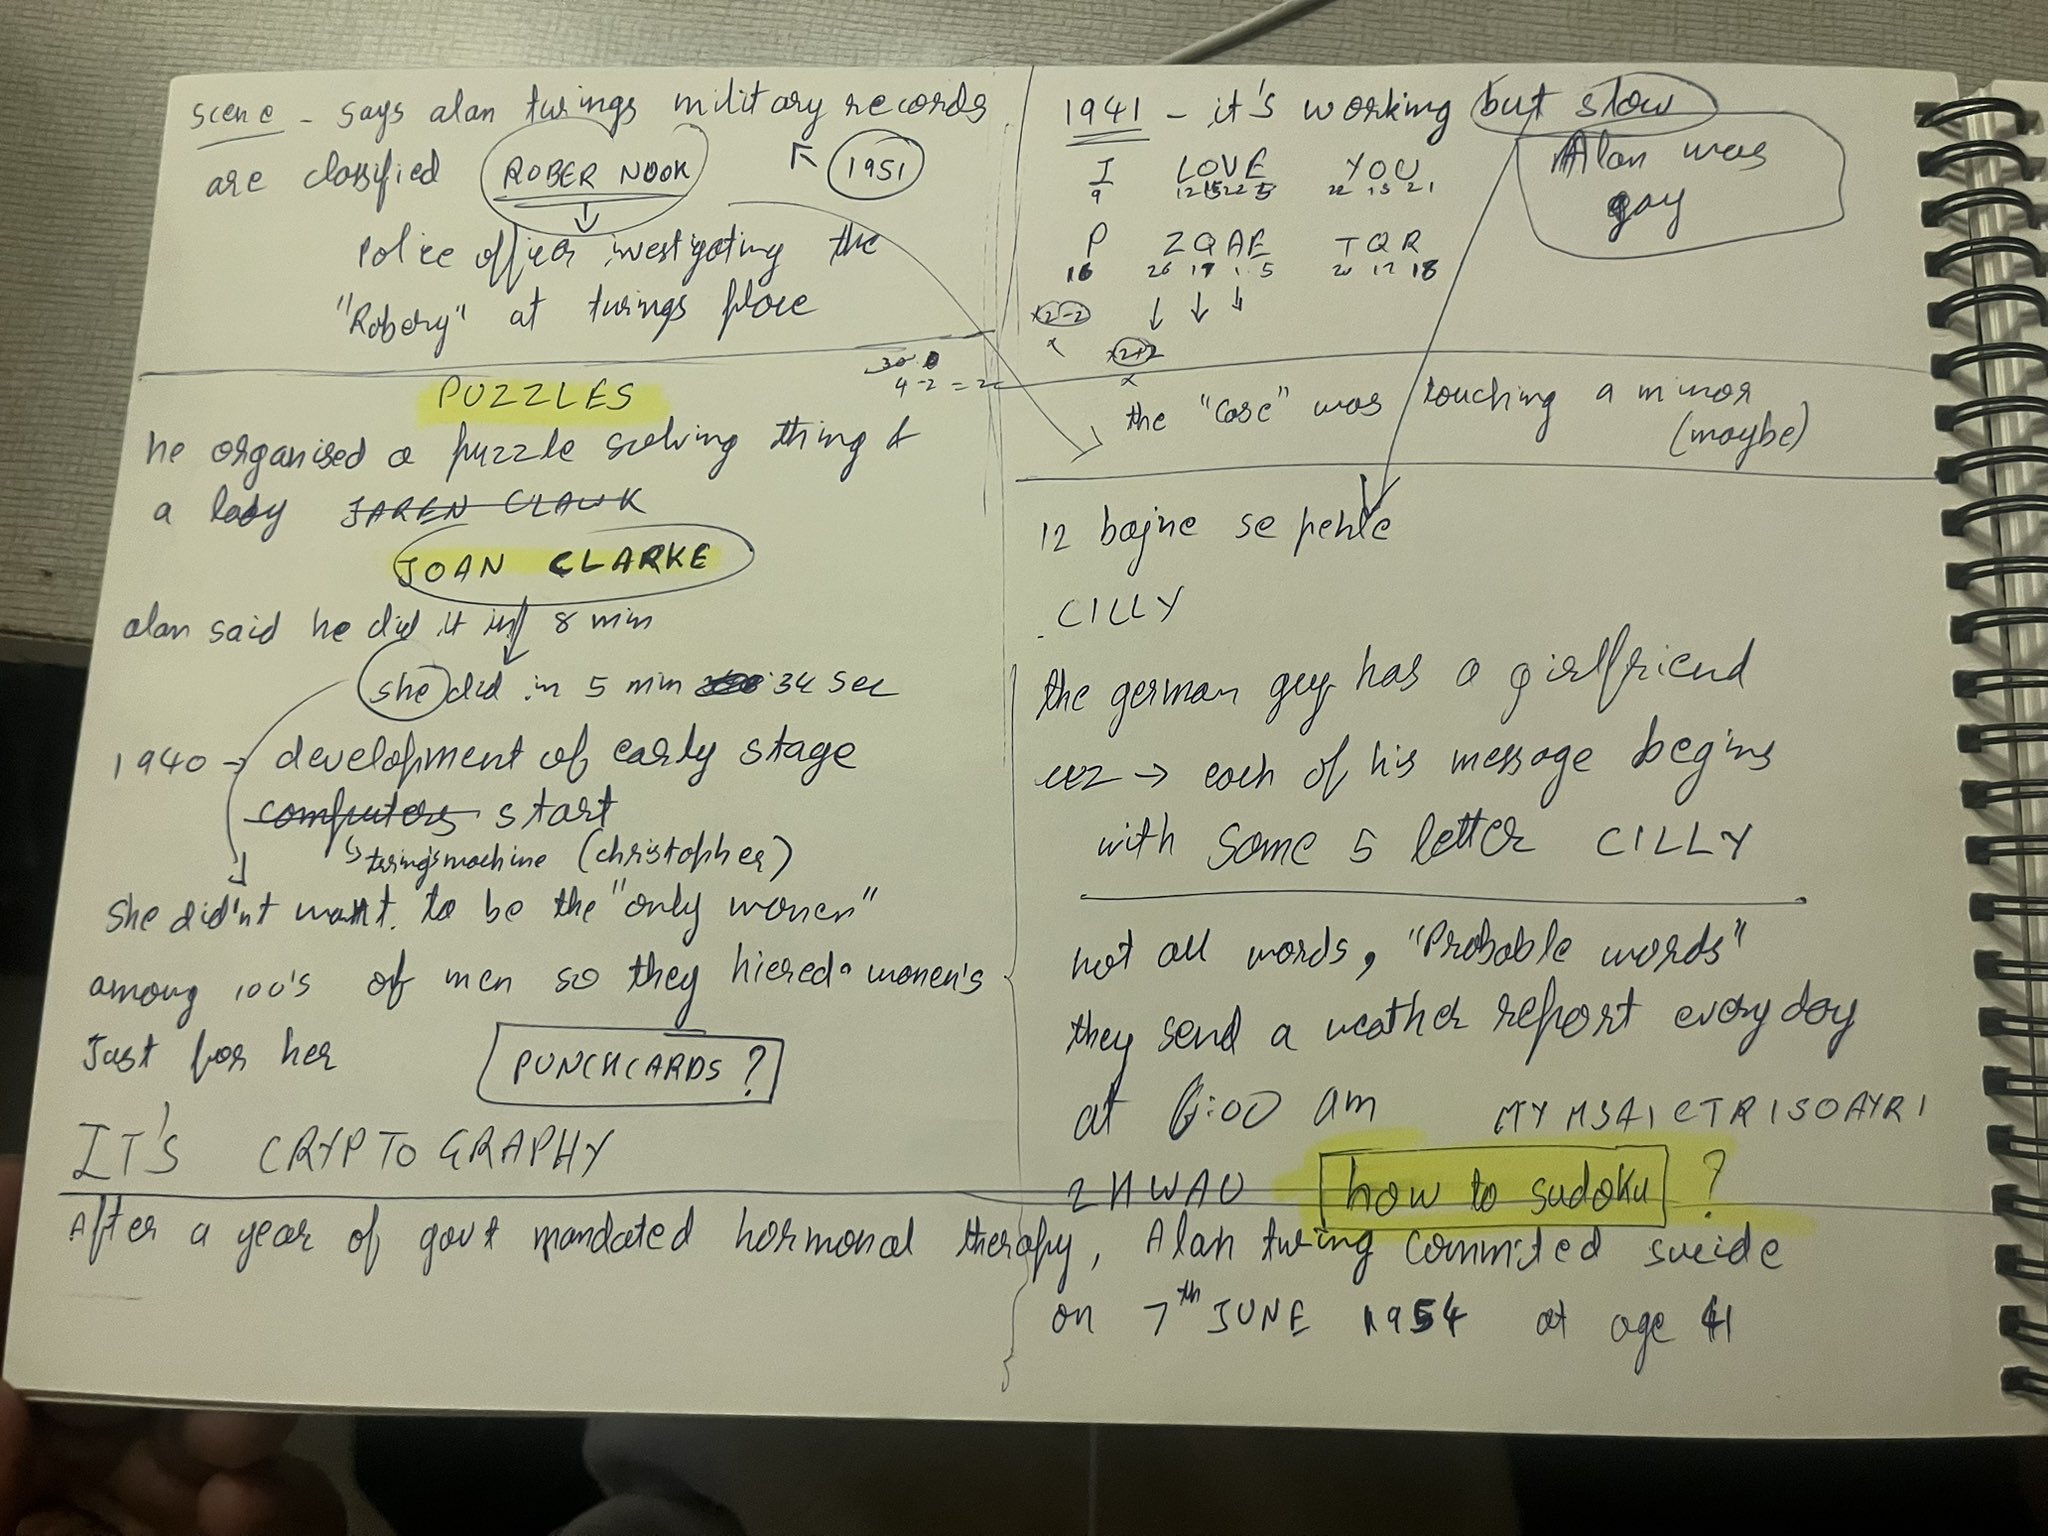 scene - says alan turings military records
are classified ROBER NOOK 1951
Police officer investigating the
"Robery" at turings place
PUZZLES
he organised a puzzle solving thing &
a lady JAREN CLAUK
JOAN CLARKE
alan said he did it in 8 min
she did in 5 min 34 sec
1940 → development of early stage
computers start
↳ turing's machine (christopher)
She did'nt want. to be the "only women"
among 100's of men so they hiered women's
Just for her PUNCHCARDS ?
IT'S CRYPTOGRAPHY
1941 - it's working but slow
Alan was
gay
I LOVE YOU
9 12 15 22 5
P ZQAE TQR
16 26 17 1 5 20 17 18
x2-2
x2+2
4-2 =
the "case" was touching a minor
(maybe)
12 bajne se pehle
CILLY
the german guy has a girlfriend
cuz → each of his message begins
with some 5 letter CILLY
not all words, "Probable words"
they send a weather report every day
at 6:00 am MYMSAICTRISOAYRI
how to sudoku ?
After a year of govt mandated hormonal therapy, Alan turing commited sucide
on 7th JUNE 1954 at age 41